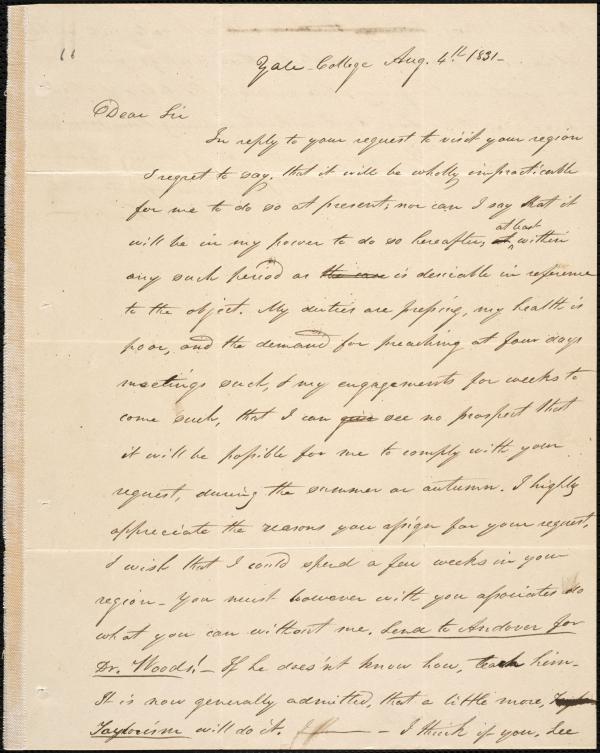 66
Yale College Aug. 4th 1831-
Dear Sir
In reply to your request to visit your region
I regret to say, that it will be wholly impracticable
for me to do so at present; nor can I say that it
will be in my power to do so hereafter, at least within
any such period as the case is desirable in reference
to the object. My duties are pressing, my health is
poor, and the demand for preaching at four days
meetings such, & my engagements for weeks to
come such, that I can give see no prospect that
it will be possible for me to comply with your
request, during the summer or autumn. I highly
appreciate the reasons you assign for your request.
I wish that I could spend a few weeks in your
region - You must however with you associates do
what you can without me. Send to Andover for
Dr. Woods! - If he does'nt know how, teach him -
It is now generally admitted, that a little more,
Taylorism will do it. - I think if you, Lee